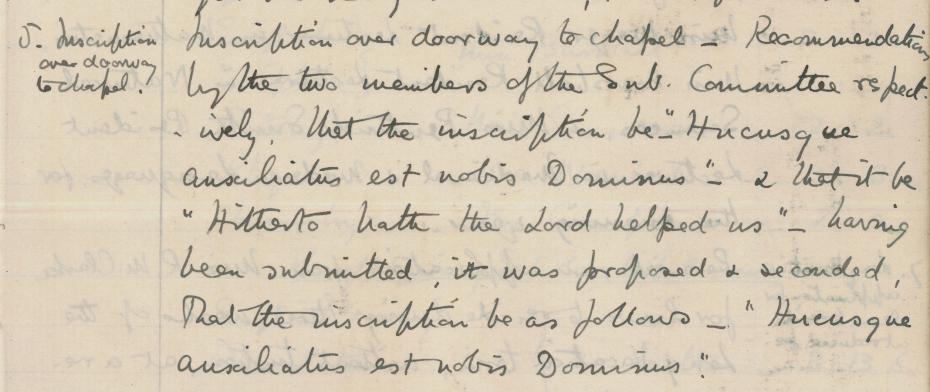 5. Inscription
over doorway
to chapel.
Inscription over doorway to chapel - Recommendation
by the two members of the Sub. Committee respect-
- ively, that the inscription be - "Hucusque
auxiliatus est nobis Dominus" - & that it be
"Hitherto hath the Lord helped us" - having
been submitted, it was proposed & seconded,
That the inscription be as follows - "Hucusque
auxiliatus est nobis Dominus".